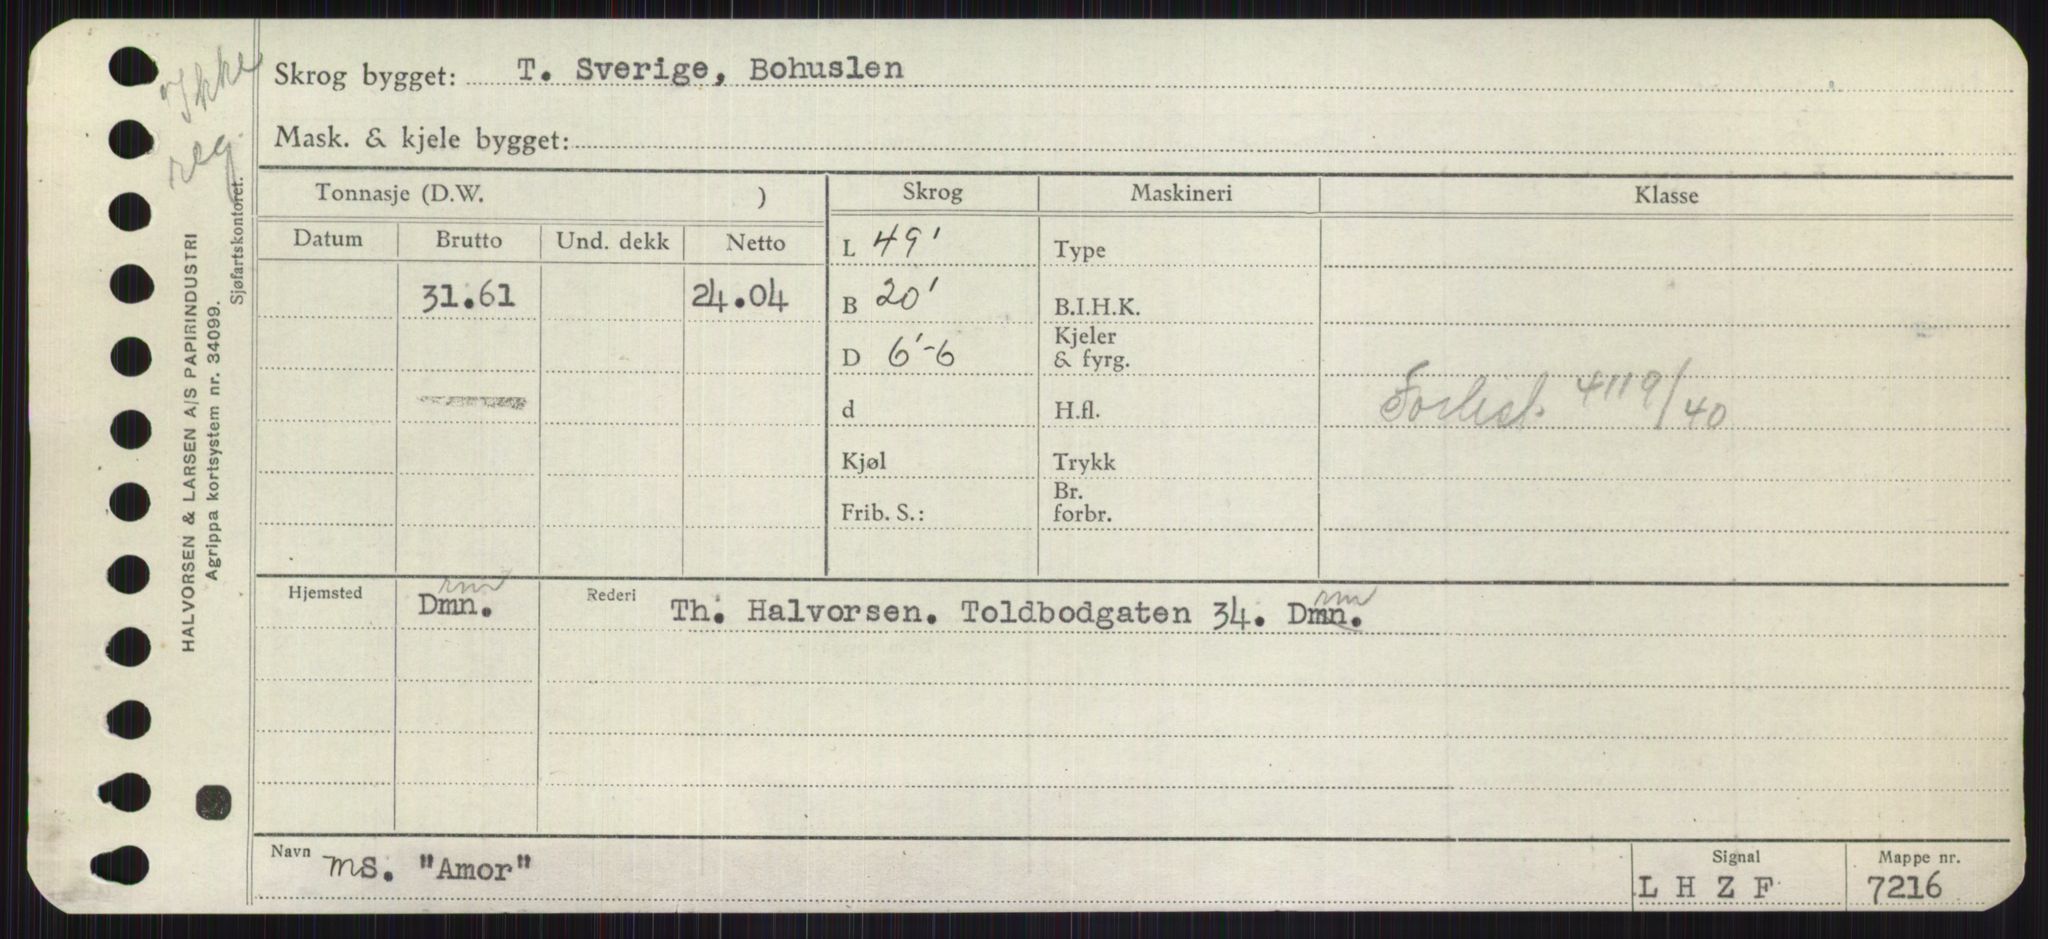 Ikke
reg.
HALVORSEN & LARSEN A/S PAPIRINDUSTRI
Agrippa kortsystem nr. 34099.
Sjøfartskontoret.
Skrog bygget: T. Sverige, Bohuslen
Mask. & kjele bygget:
Tonnasje (D.W. ) Skrog Maskineri Klasse
Datum Brutto Und. dekk Netto L 49' Type
31.61 24.04 B 20' B.I.H.K.
D 6'-6 Kjeler & fyrg.
d H.fl. Forlist 4119/40
Kjøl Trykk
Frib. S.: Br. forbr.
Hjemsted Dmn. Rederi Th. Halvorsen. Toldbodgaten 34. Dmn.
Navn MS. "Amor" Signal L H Z F Mappe nr. 7216